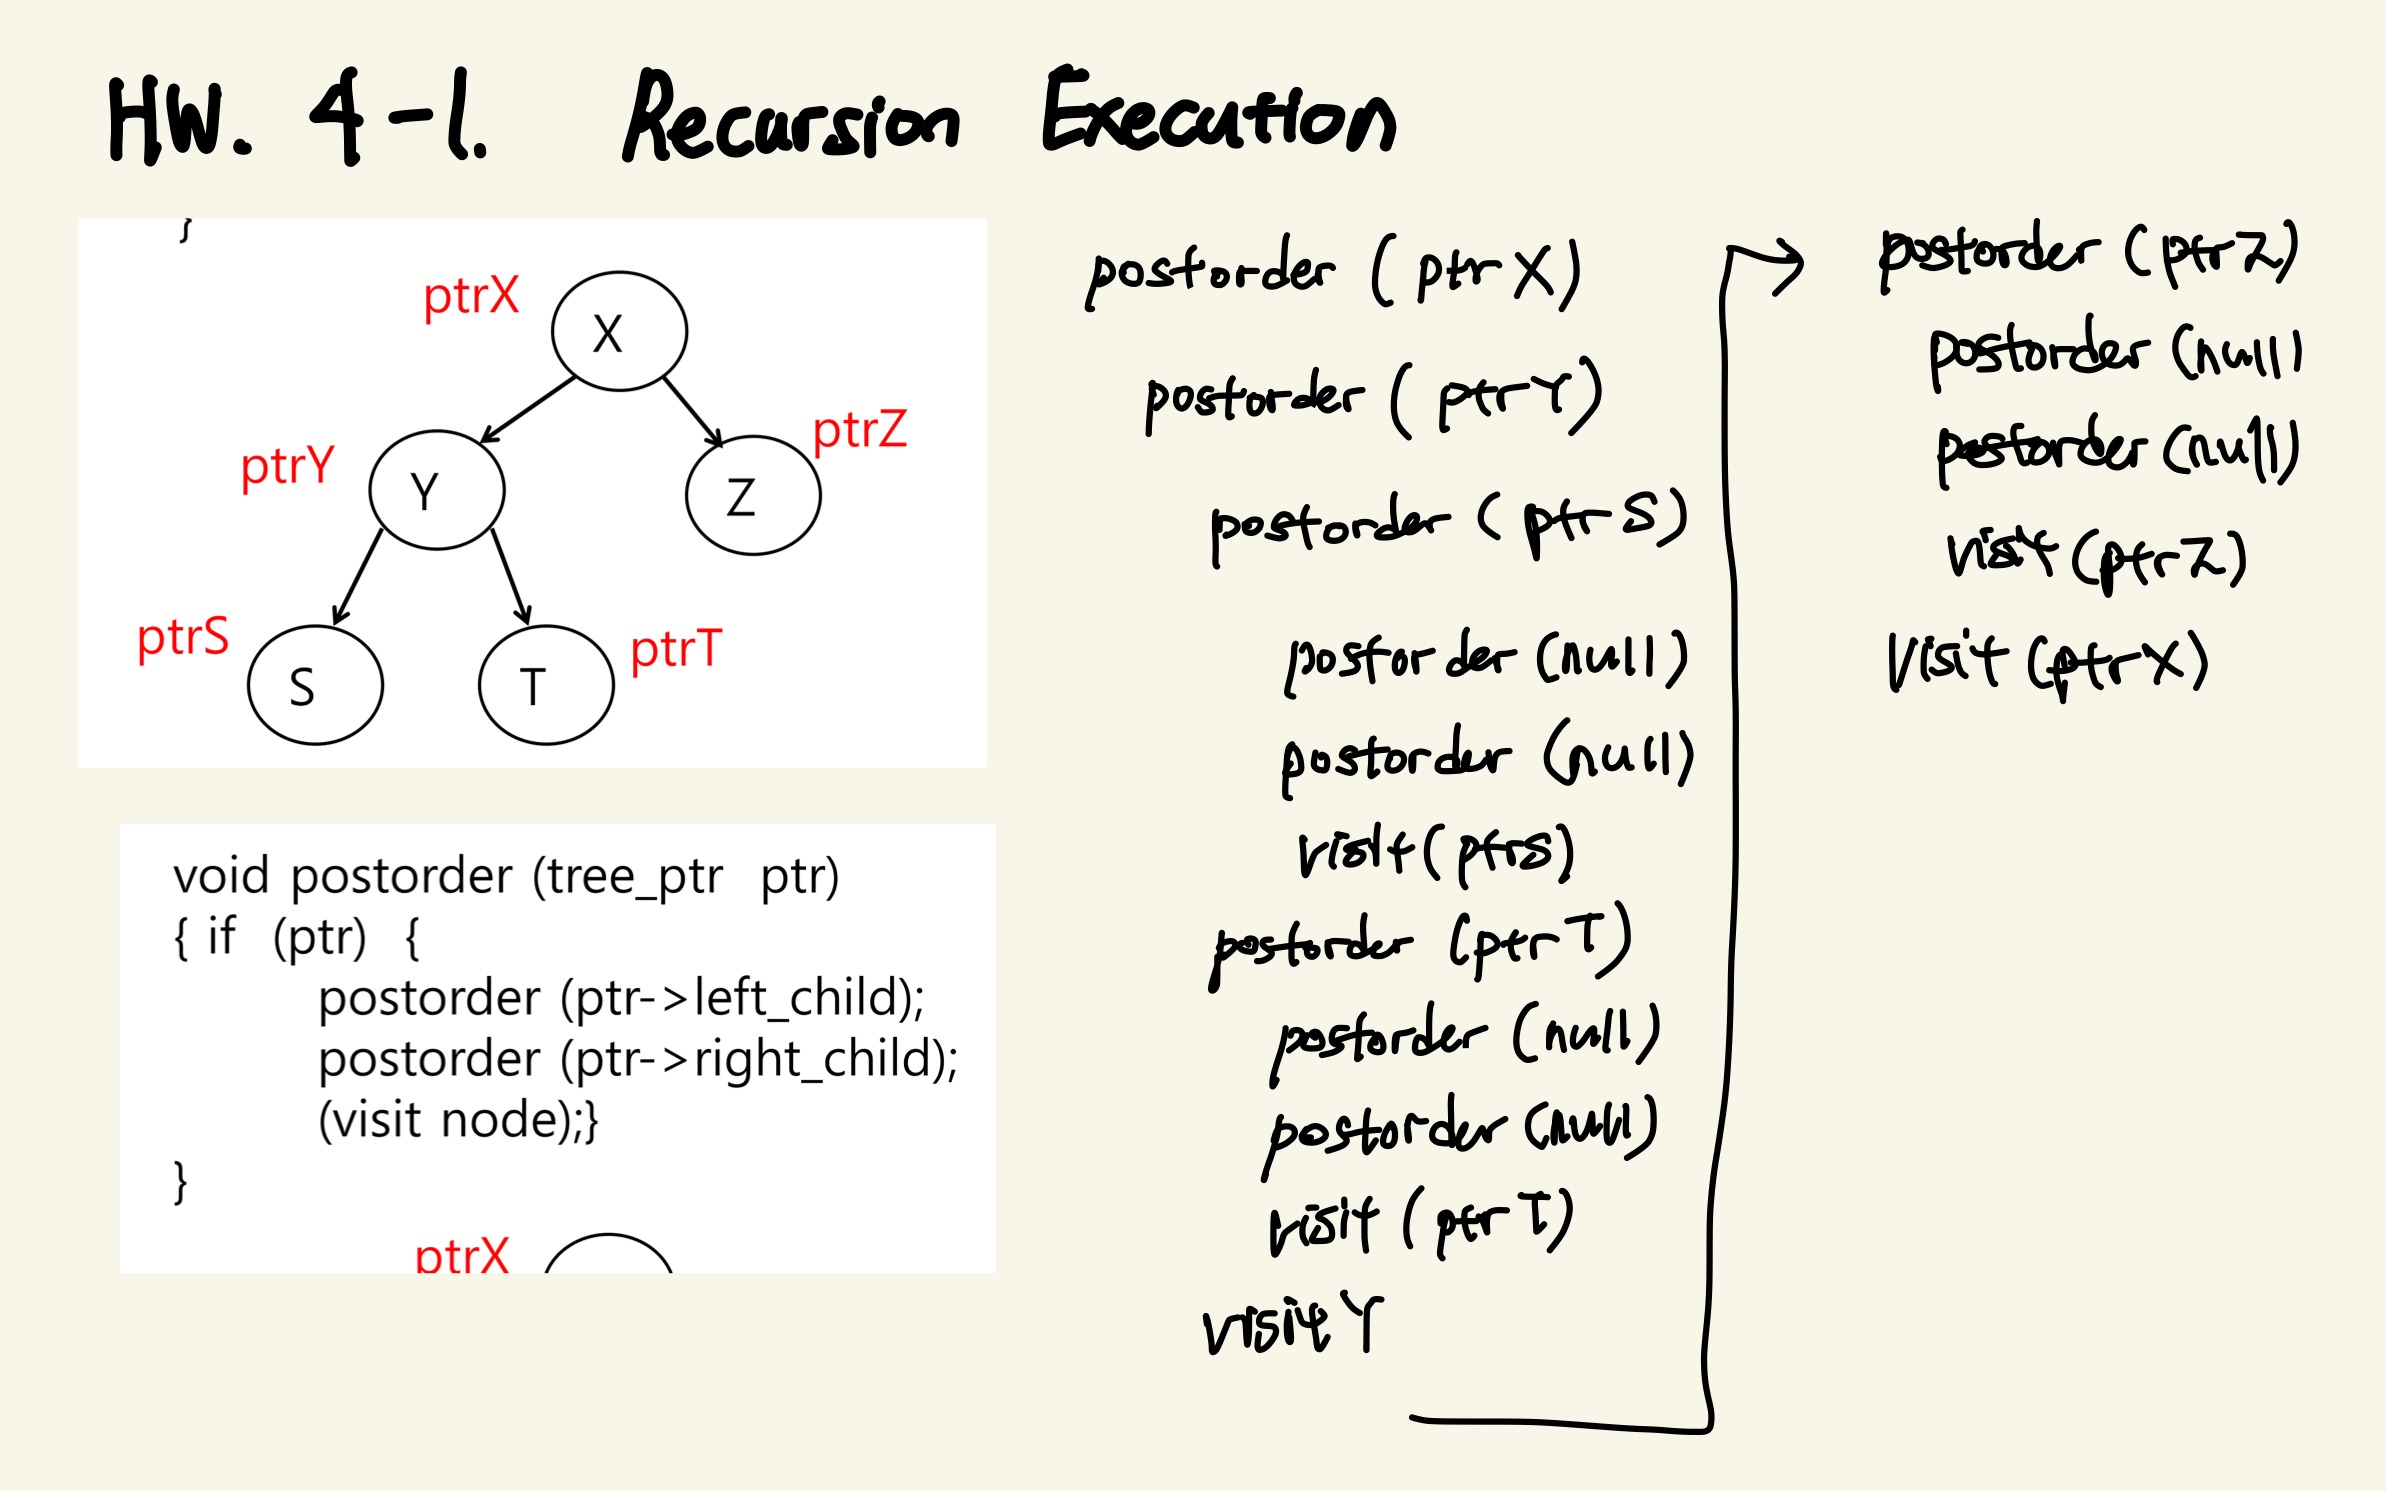 HW. 4-1. Recursion Execution
}
ptrX
X
ptrY
Y
ptrZ
Z
ptrS
S
T
ptrT
void postorder (tree_ptr ptr)
{ if (ptr) {
postorder (ptr->left_child);
postorder (ptr->right_child);
(visit node);}
}
ptrX
postorder (ptrX)
postorder (ptrY)
postorder (ptrS)
postorder (null)
postorder (null)
visit (ptrS)
postorder (ptrT)
postorder (null)
postorder (null)
visit (ptrT)
visit Y
postorder (ptrZ)
postorder (null)
postorder (null)
visit (ptrZ)
visit (ptrX)